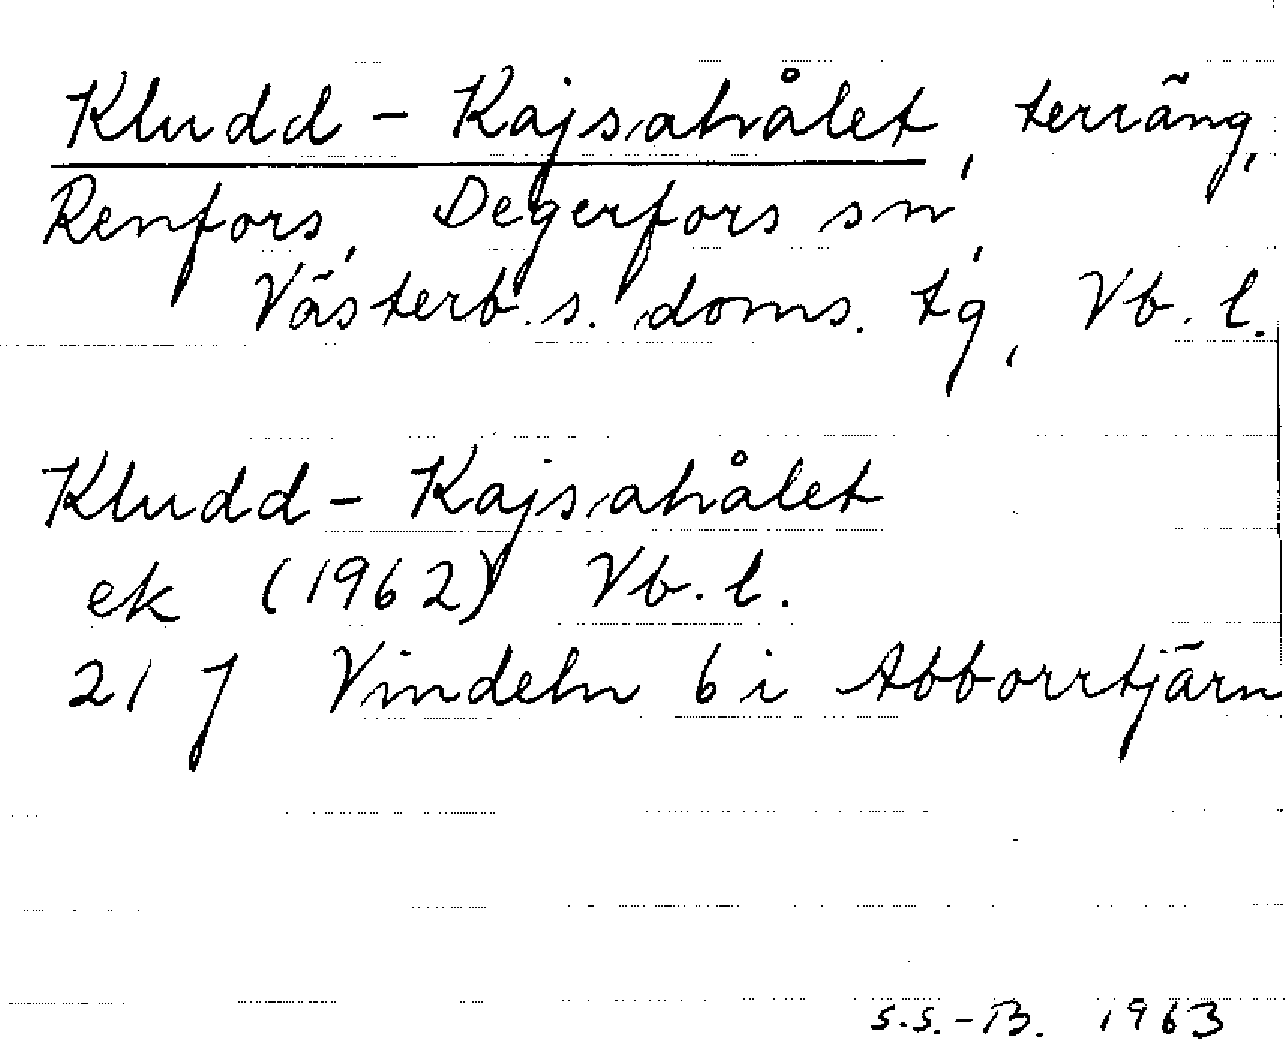 Kludd-Kajsahålet, terräng,
Renfors, Degerfors sn,
Västerb. s. doms. tg, Vb. l.
Kludd-Kajsahålet
ek (1962) Vb. l.
21 J Vindeln 6 i Abborrtjärn
S.S.-B. 1963